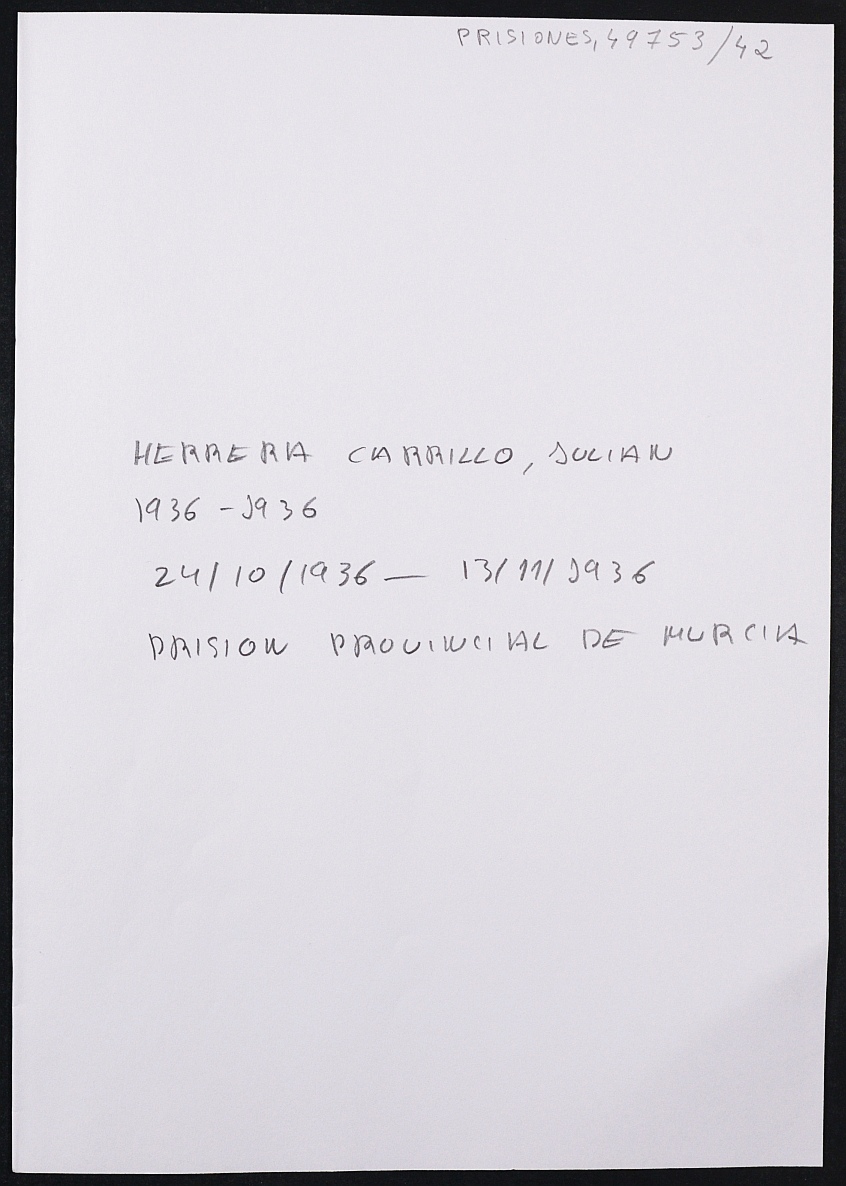 PRISIONES, 49753/42
HERRERA CARRILLO, JULIAN
1936 - 1936
24/10/1936 — 13/11/1936
PRISION PROVINCIAL DE MURCIA